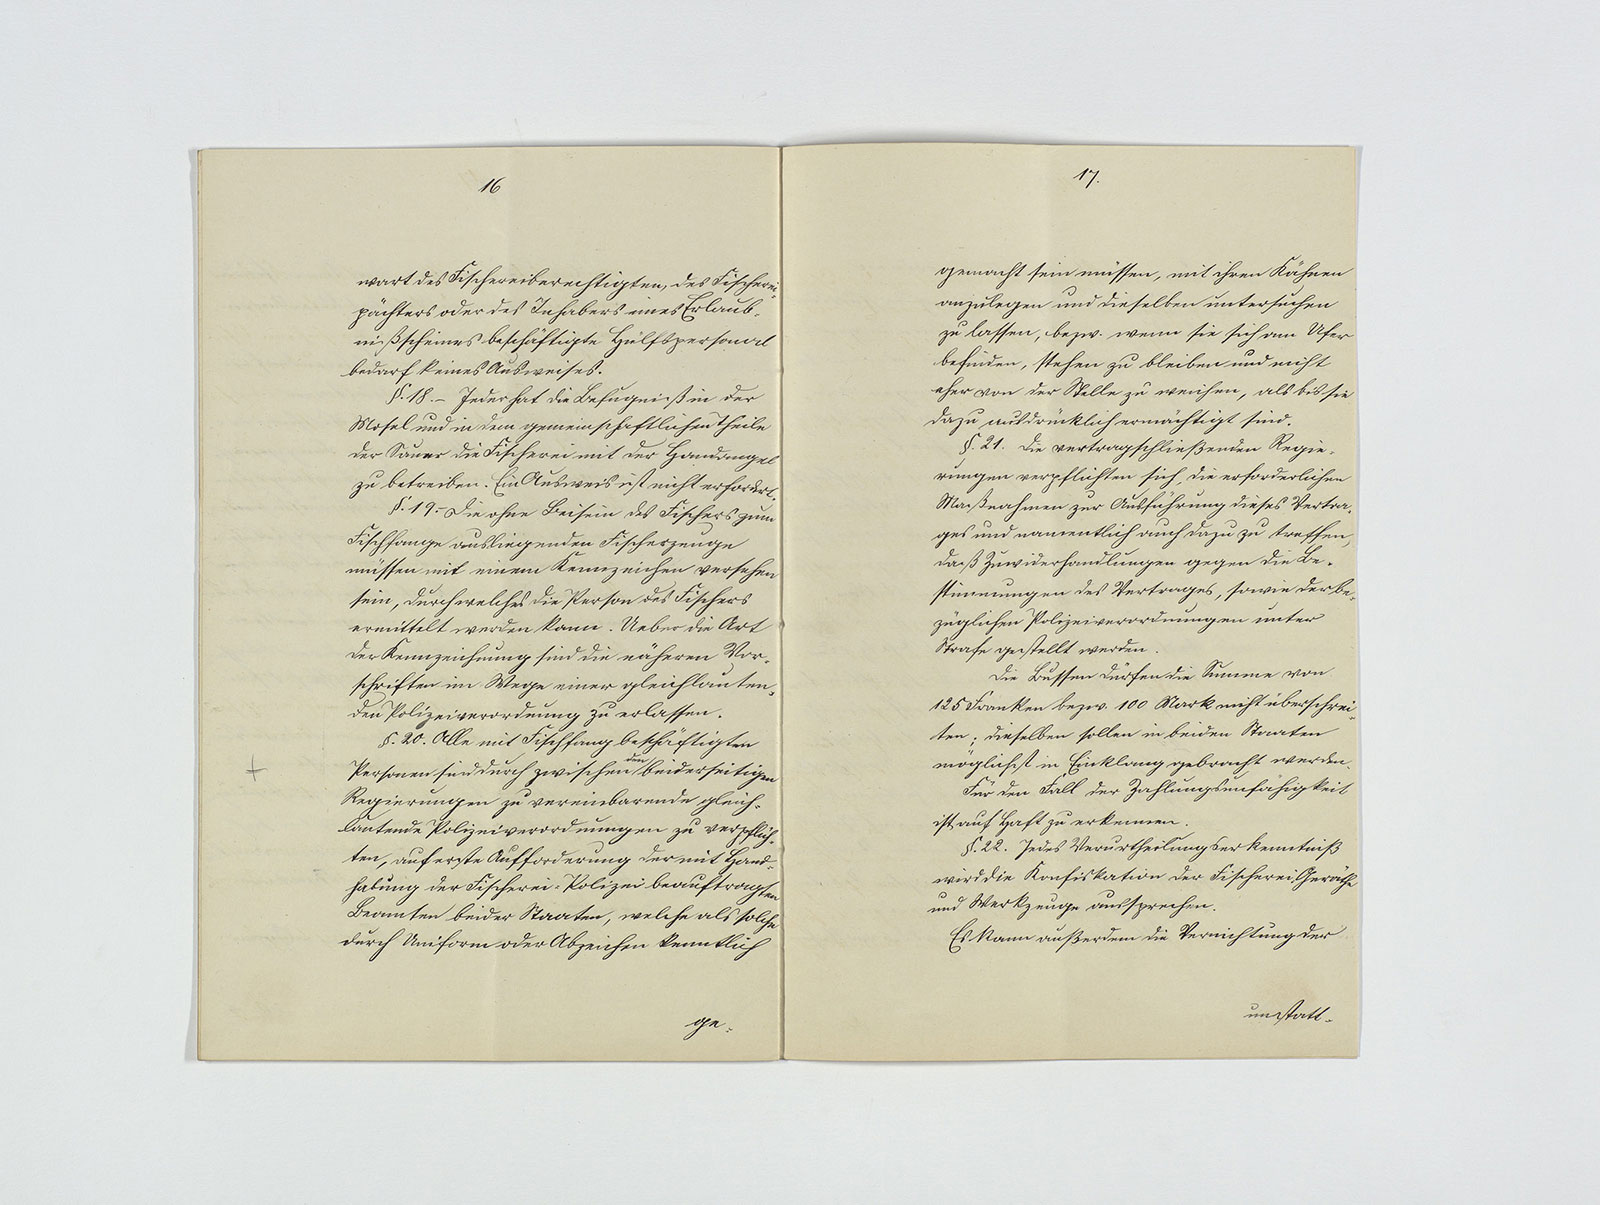 16
wart des Fischereiberechtigten, des Fischerei-
pächters oder des Inhabers eines Erlaub-
nißscheines beschäftigte Hülfspersonal
bedarf keines Ausweises.
§. 18. – Jeder hat die Befugniß in der
Mosel und in dem gemeinschaftlichen Theile
der Sauer die Fischerei mit der Handangel
zu betreiben. Ein Ausweis ist nicht erfordert.
§. 19. – Die ohne Beisein des Fischers zum
Fischfange ausliegenden Fischerzeuge
müssen mit einem Kennzeichen versehen
sein, durch welches die Person des Fischers
ermittelt werden kann. Ueber die Art
der Kennzeichnung sind die näheren Vor-
schriften im Wege einer gleichlauten-
den Polizeiverordnung zu erlassen.
§. 20. Alle mit Fischfang beschäftigten
Personen sind durch zwischen den beiderseitigen
Regierungen zu vereinbarende gleich-
lautende Polizeiverordnungen zu verpflich-
ten, auf erste Aufforderung der mit Hand-
habung der Fischerei-Polizei beauftragten
Beamten beider Staaten, welche als solche
durch Uniform oder Abzeichen kenntlich
ge-
17.
gemacht sein müssen, mit ihren Kähnen
anzulegen und dieselben untersuchen
zu lassen, bezw. wenn sie sich am Ufer
befinden, stehen zu bleiben und nicht
eher von der Stelle zu weichen, als bis sie
dazu ausdrücklich ermächtigt sind.
§. 21. Die vertragschließenden Regie-
rungen verpflichten sich, die erforderlichen
Maßnahmen zur Ausführung dieses Vertra-
ges und namentlich auch dazu zu treffen,
daß Zuwiderhandlungen gegen die Be-
stimmungen des Vertrages, sowie der be-
züglichen Polizeiverordnungen unter
Strafe gestellt werden.
Die Bussen dürfen die Summe von
125 Franken bezw. 100 Mark nicht überschrei-
ten; dieselben sollen in beiden Staaten
möglichst in Einklang gebracht werden.
Für den Fall der Zahlungsunfähigkeit
ist auf Haft zu erkennen.
§. 22. Jedes Verurtheilungserkenntniß
wird die Konfiskation der Fischerei Geräthe
und Werkzeuge aussprechen.
Es kann außerdem die Vernichtung der
unstatt-